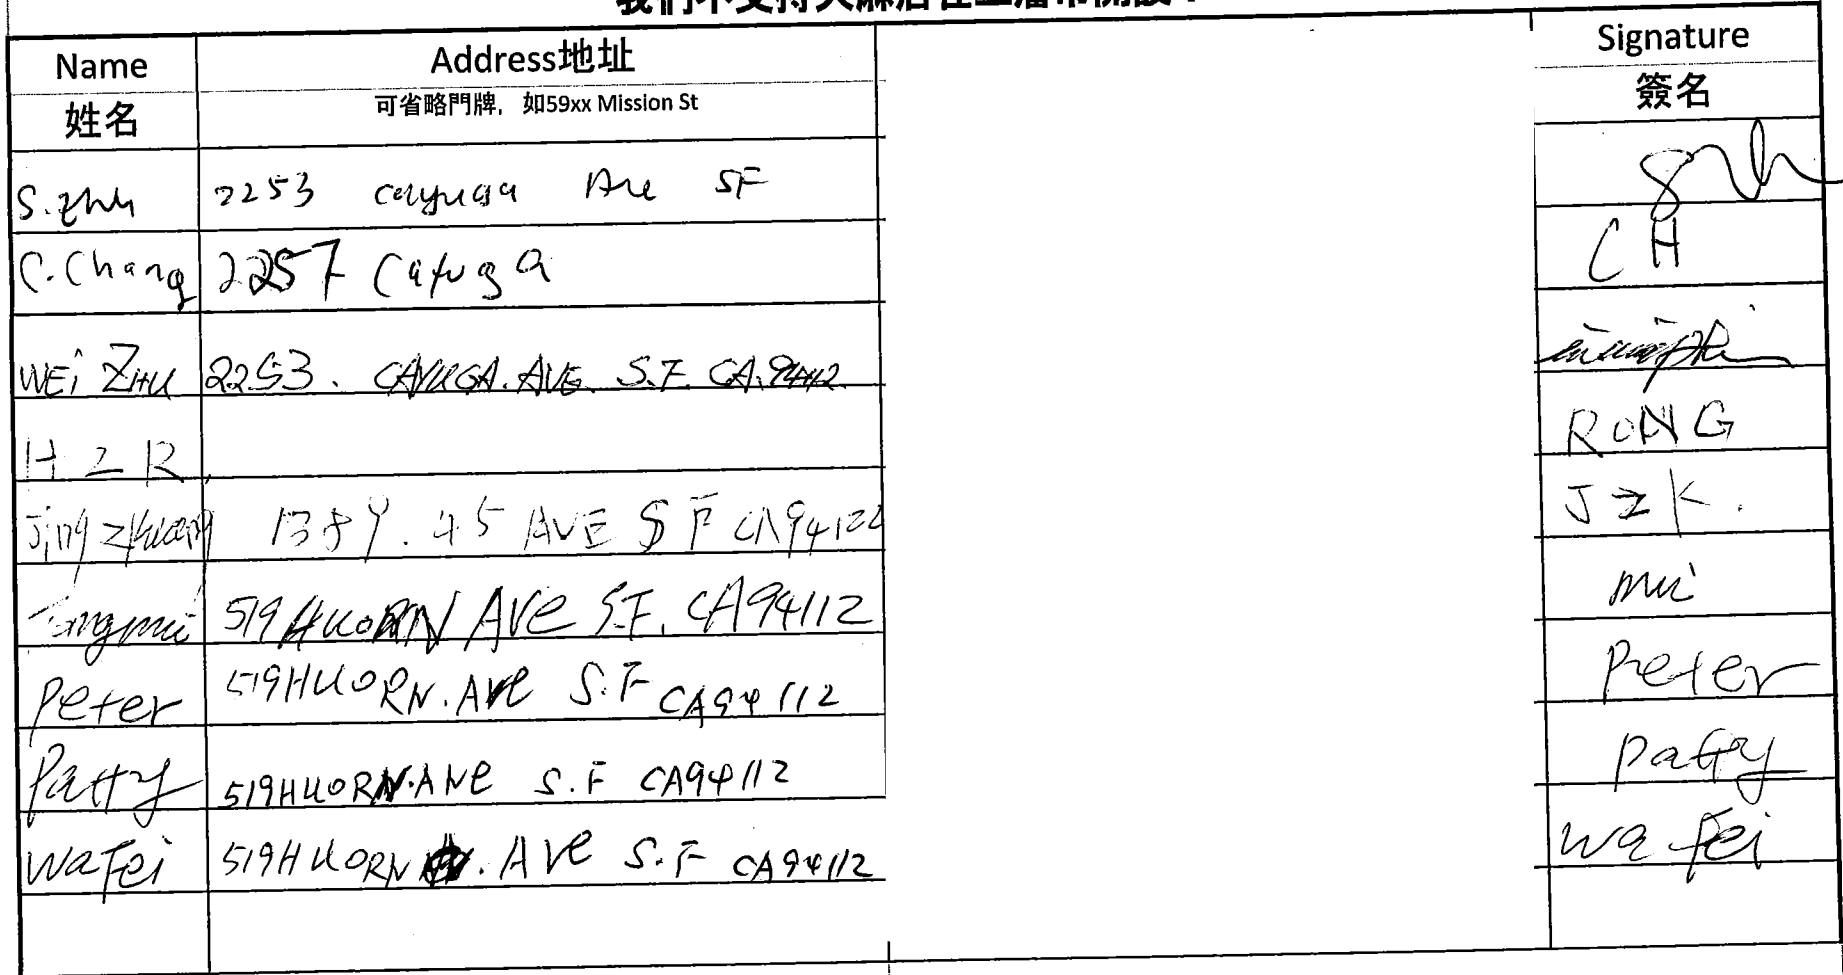 Name Address地址 Signature
姓名 可省略門牌, 如59xx Mission St 簽名
S. Zhu 2253 Cayuga Ave SF
C. Chang 2257 Cayuga CH
WEi ZHU 2253. CAYUGA. AVE. S.F. CA. 94112
H Z R RONG
1389. 45 AVE S F CA94122 J Z K.
519 HUORN AVe S.F. CA94112 mui
Peter 519HUORN. AVe S.F CA94112 Peter
Patty 519HUORN. AVe S.F CA94112 Patty
WaFei 519HUORN. AVe S.F CA94112 Wa Fei